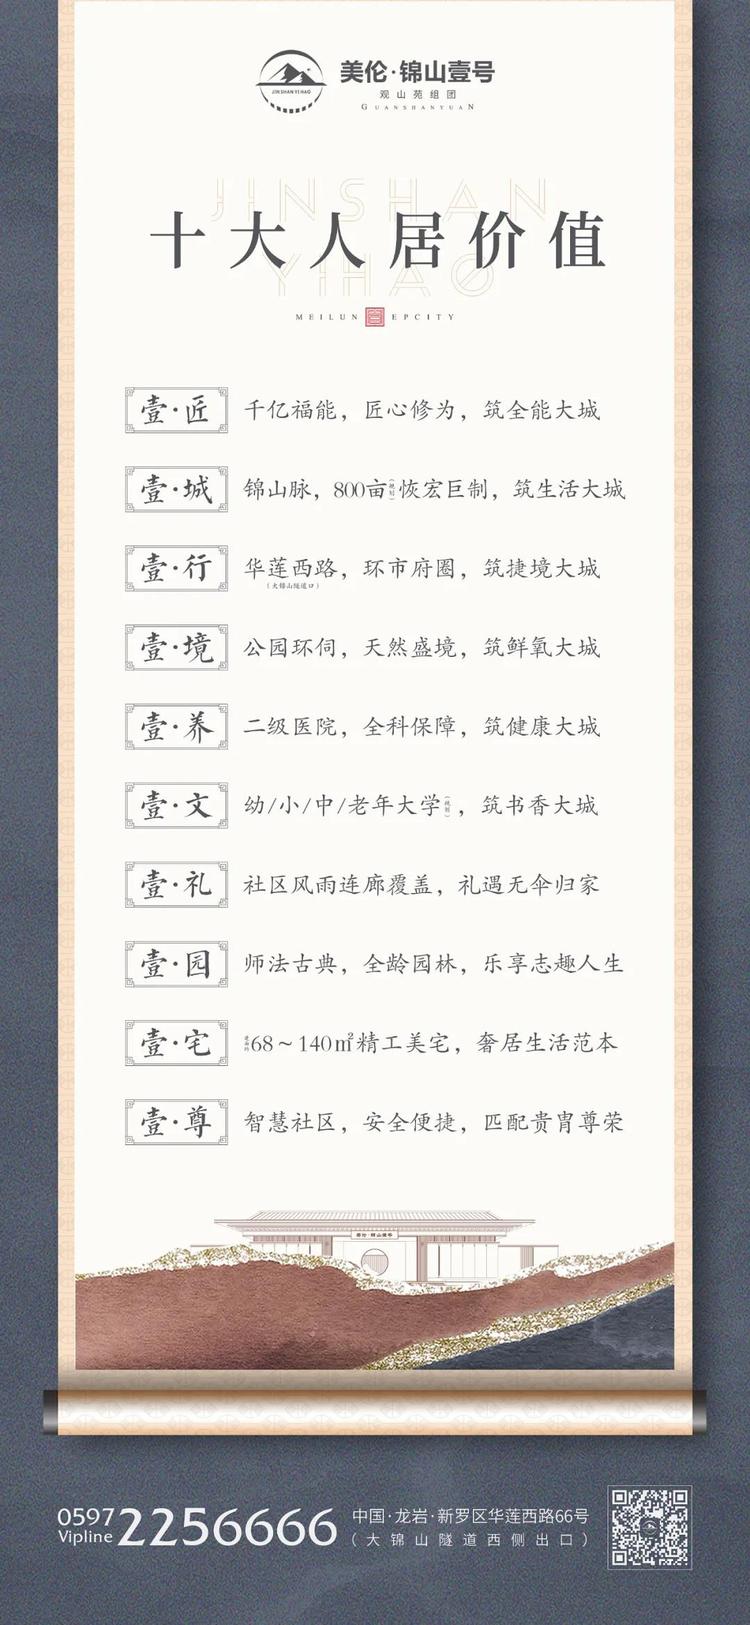 美伦·锦山壹号
JINSHAN YI HAO
观山苑组团
GUANSHANYUAN
JINSHAN
十大人居价值
YIHAO
MEILUN EPCITY
壹·匠 千亿福能，匠心修为，筑全能大城
壹·城 锦山脉，800亩（规划）恢宏巨制，筑生活大城
壹·行 华莲西路，环市府圈，筑捷境大城
（大锦山隧道口）
壹·境 公园环伺，天然盛境，筑鲜氧大城
壹·养 二级医院，全科保障，筑健康大城
壹·文 幼/小/中/老年大学（规划），筑书香大城
壹·礼 社区风雨连廊覆盖，礼遇无伞归家
壹·园 师法古典，全龄园林，乐享志趣人生
壹·宅 建面约68～140㎡精工美宅，奢居生活范本
壹·尊 智慧社区，安全便捷，匹配贵胄尊荣
美伦·锦山壹号
0597 2256666
Vipline
中国·龙岩·新罗区华莲西路66号
（大锦山隧道西侧出口）